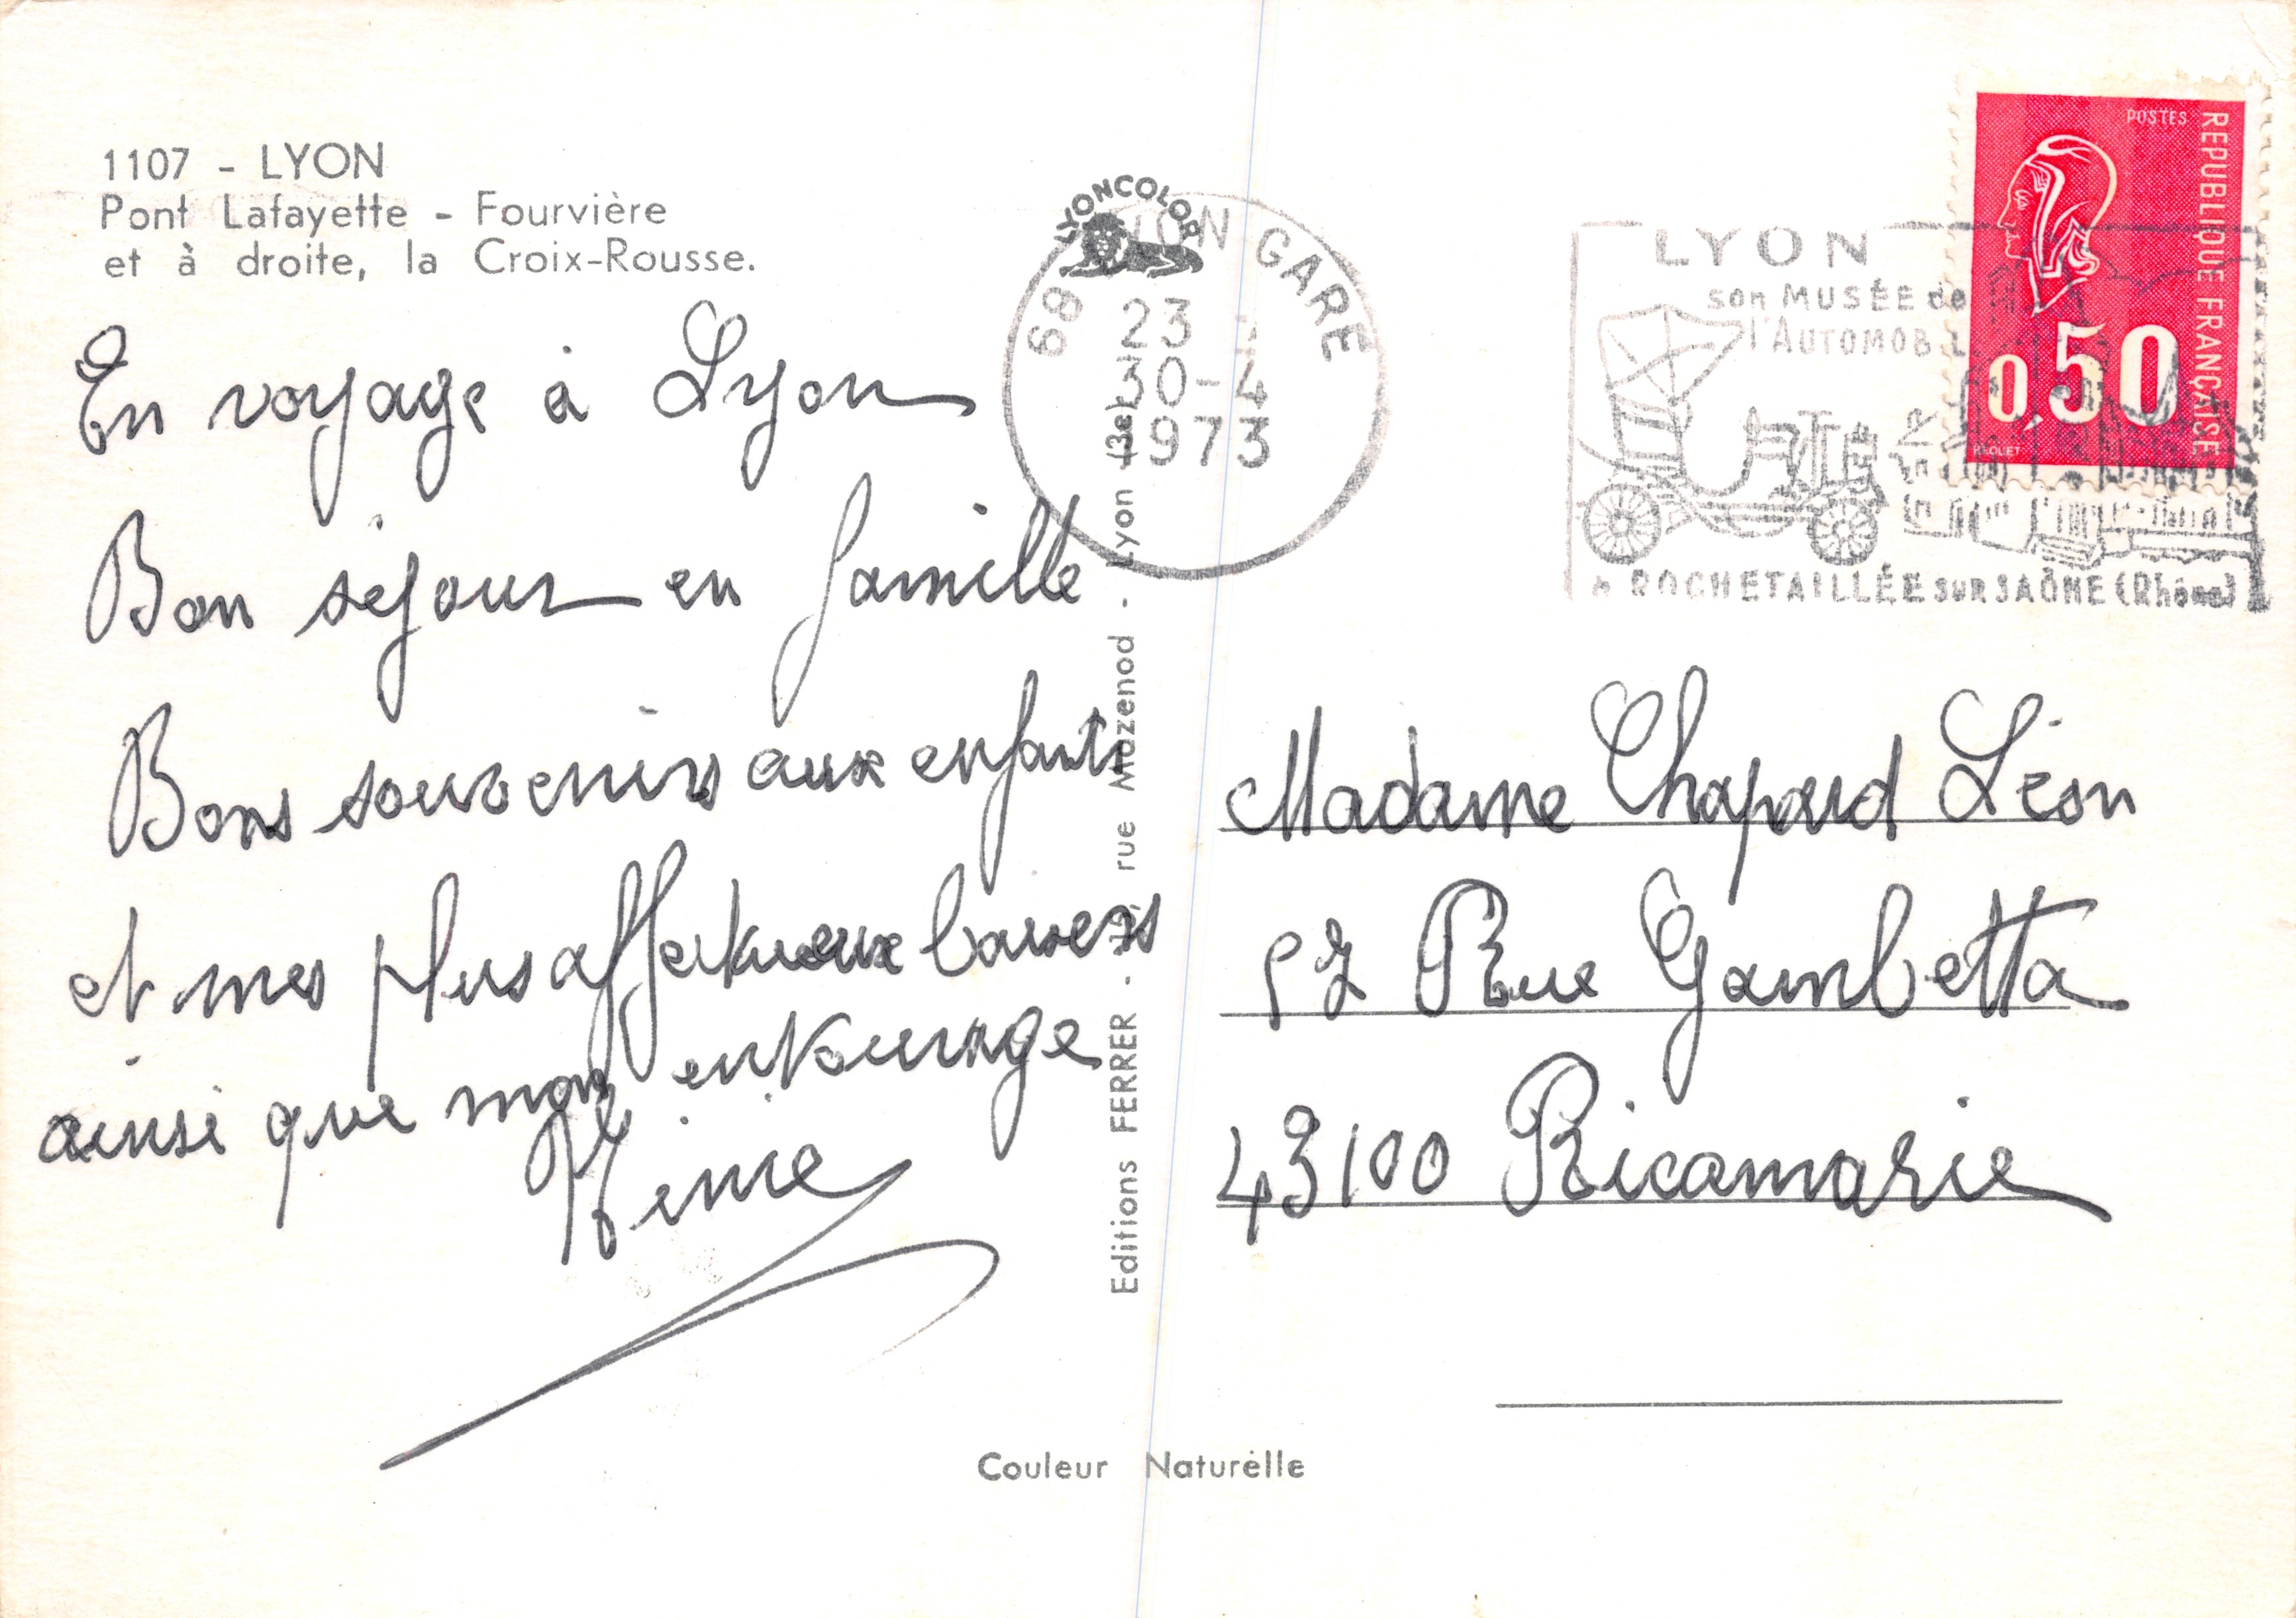 1107 - LYON
Pont Lafayette - Fourvière
et à droite, la Croix-Rousse.
En voyage à Lyon
Bon sejour en famille
Bons souvenirs aux enfants
et mes plus affectueux baisers
ainsi que mon entourage
LYONCOLOR
69 LYON GARE
23
30-4
1973
Editions FERRER - rue Mazenod - Lyon (3e)
Couleur Naturelle
LYON
son MUSÉE de
l'AUTOMOBIL
à ROCHETAILLÉE SUR SAÔNE (Rhône)
POSTES
REPUBLIQUE FRANÇAISE
0,50
Madame Chapard Léon
57 Rue Gambetta
43100 Ricamarie